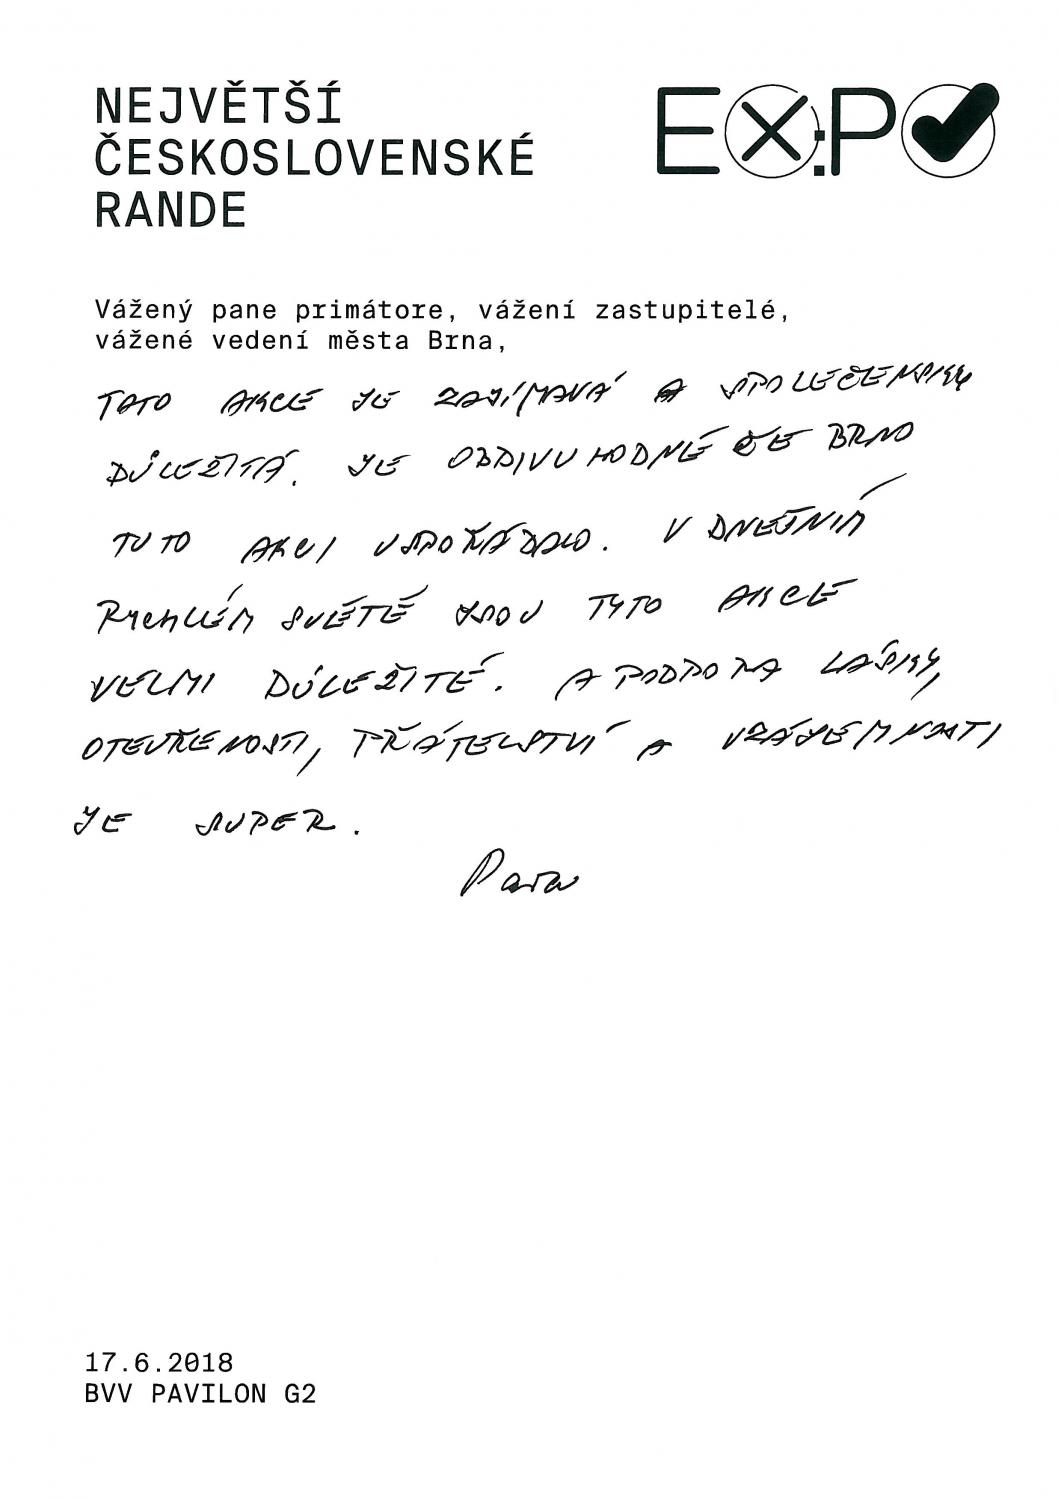 NEJVĚTŠÍ
ČESKOSLOVENSKÉ
RANDE
EX:PO
Vážený pane primátore, vážení zastupitelé,
vážené vedení města Brna,
TATO AKCE JE ZAJÍMAVÁ A SPOLEČENSKY
DŮLEŽITÁ. JE OBDIVUHODNÉ ŽE BRNO
TUTO AKCI USPOŘÁDALO. V DNEŠNÍM
RYCHLÉM SVĚTĚ JSOU TYTO AKCE
VELMI DŮLEŽITÉ. A PODPORA LÁSKY,
OTEVŘENOSTI, PŘÁTELSTVÍ A VZÁJEMNOSTI
JE SUPER.
17.6.2018
BVV PAVILON G2